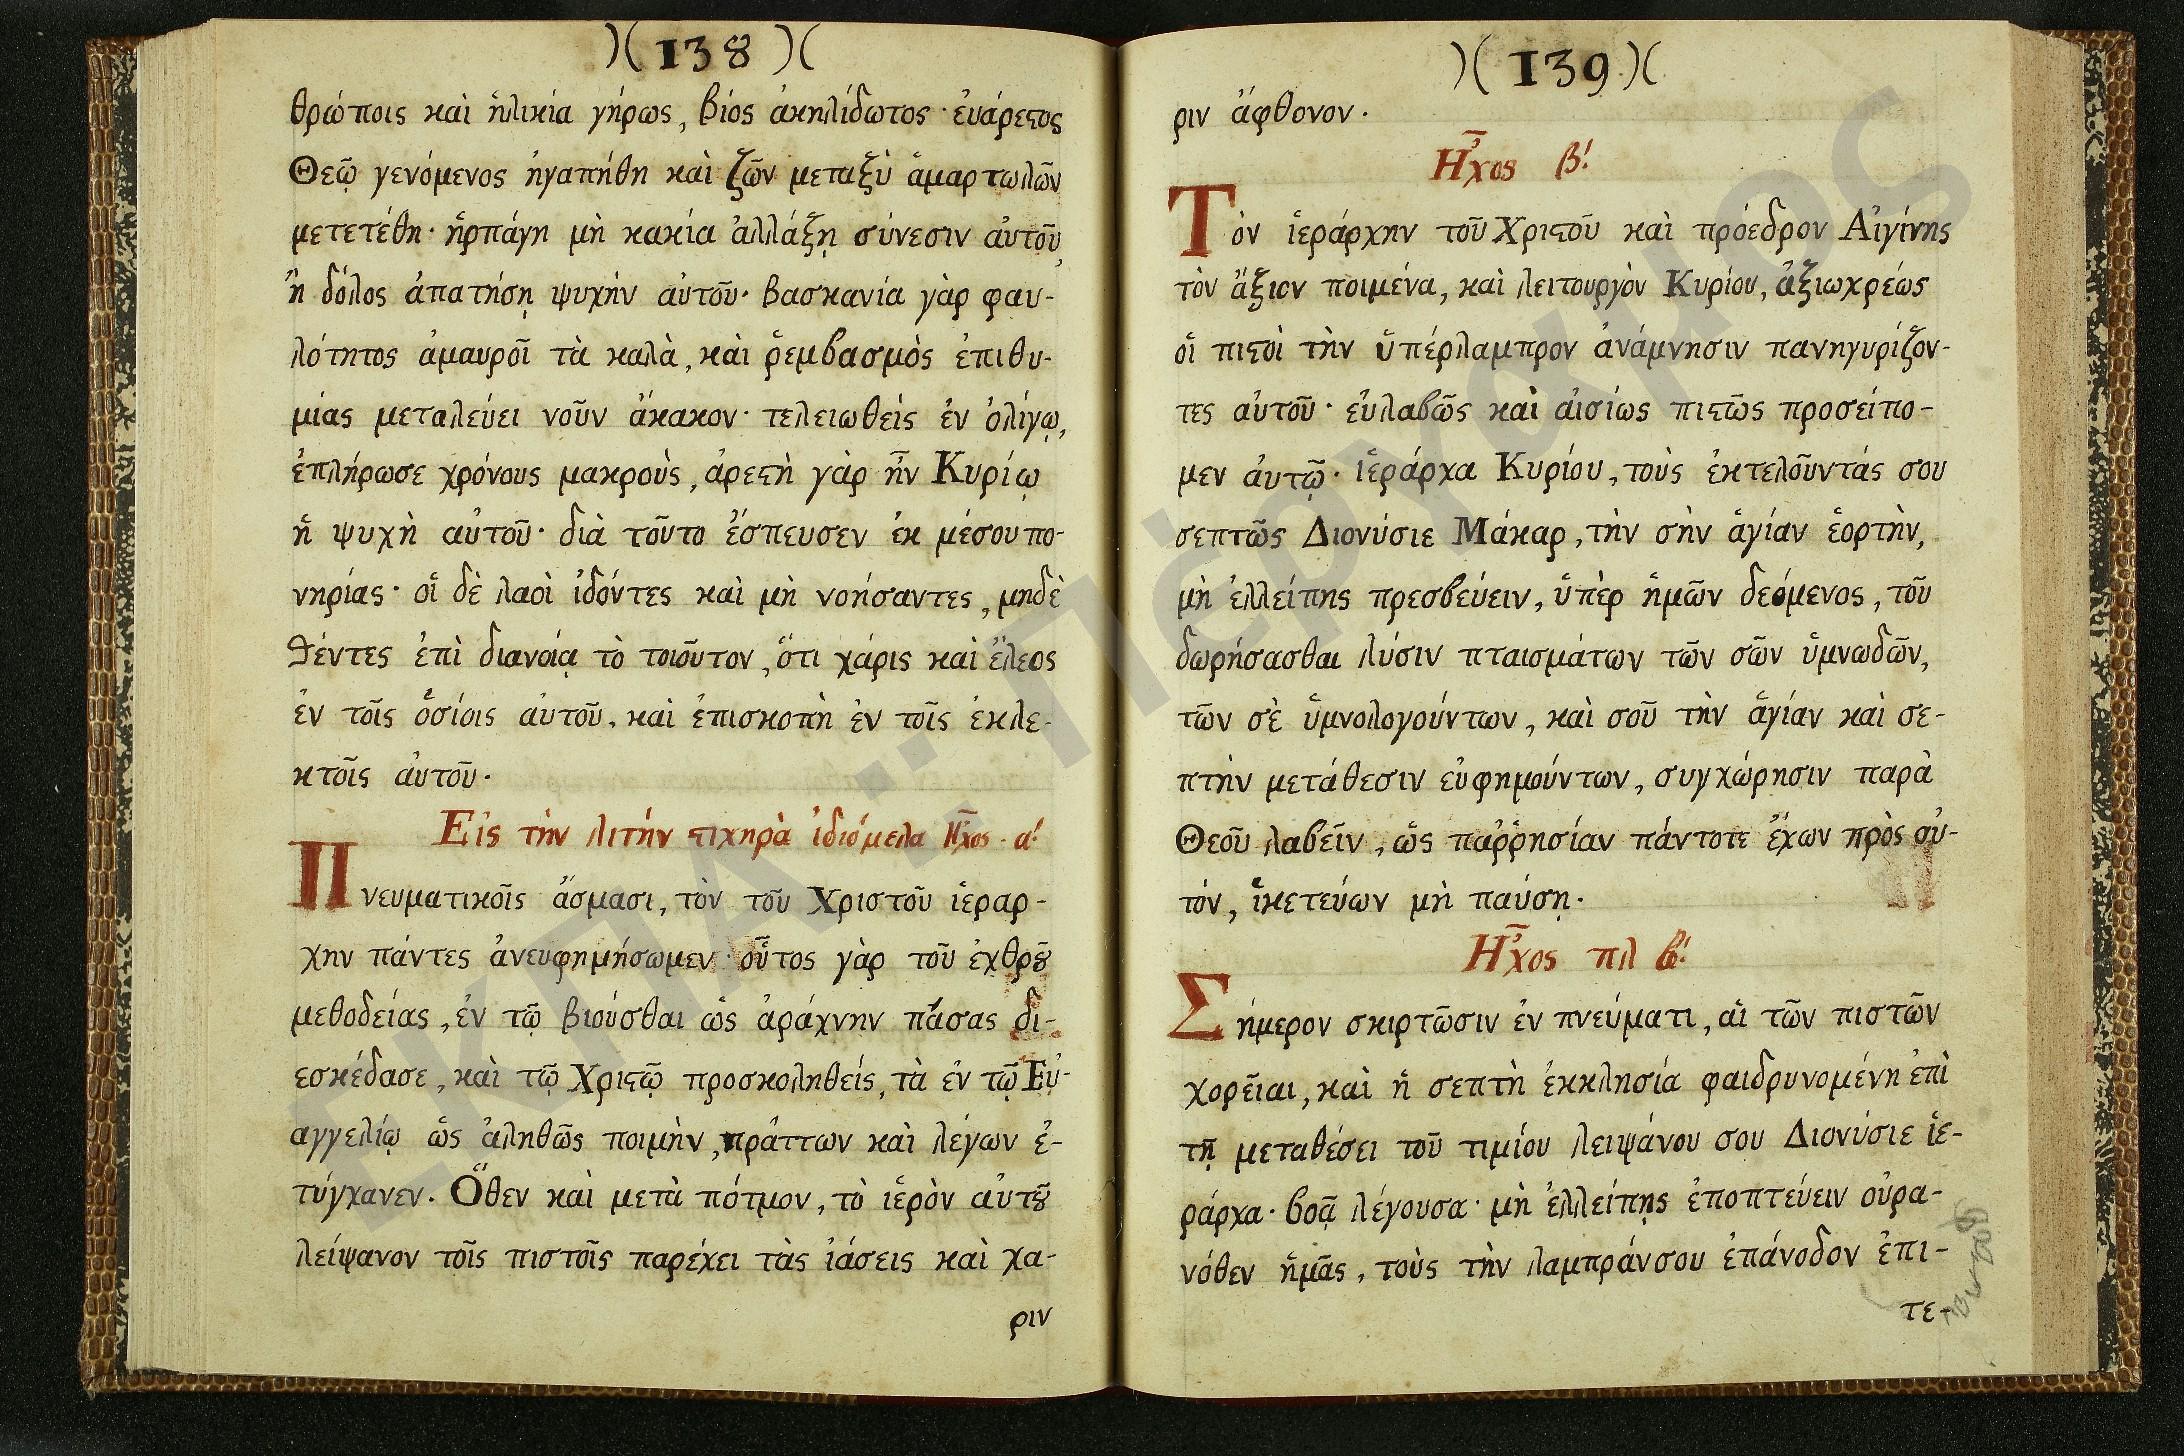 )( 138 )(
θρώποις καὶ ἡλικία γήρως, βίος ἀκηλίδωτος· ἐυάρεϛος
Θεῷ γενόμενος ἠγαπήθη καὶ ζῶν μεταξὺ ἁμαρτωλῶν
μετετέθη· ἡρπάγη μὴ κακία ἀλλάξῃ σύνεσιν ἀυτοῦ,
ἢ δόλος ἀπατήσῃ ψυχήν αὐτοῦ· βασκανία γὰρ φαυ-
λότητος ἀμαυροῖ τὰ καλὰ, καὶ ῥεμβασμὸς ἐπιθυ-
μίας μεταλεύει νοῦν ἄκακον· τελειωθεὶς ἐν ὀλίγῳ,
ἐπλήρωσε χρόνους μακροὺς, ἀρεϛὴ γὰρ ἦν Κυρίῳ
ἡ ψυχὴ αὐτοῦ· διὰ τοῦτο ἔσπευσεν ἐκ μέσου πο-
νηρίας· οἱ δὲ λαοὶ ἰδόντες καὶ μὴ νοήσαντες, μηδὲ
θέντες ἐπὶ διανοίᾳ τὸ τοιοῦτον, ὅτι χάρις καὶ ἔλεος
ἐν τοῖς ὁσίοις αὐτοῦ, καὶ ἐπισκοπὴ ἐν τοῖς ἐκλε-
κτοῖς ἀυτοῦ·
Εἰς τὴν λιτήν ϛιχηρὰ ἰδιόμελα Ἦχος· α!
Πνευματικοῖς ἄσμασι, τὸν τοῦ Χριστοῦ ἱεραρ-
χην πάντες ἀνευφημήσωμεν· οὗτος γὰρ τοῦ ἐχθρȣ͂
μεθοδείας, ἐν τῷ βιούσθαι ὡς ἀράχνην πάσας δι-
εσκέδασε, καὶ τῷ Χριϛῷ προσκοληθείς, τὰ ἐν τῷ Εὐ-
αγγελίῳ ὡς ἀληθῶς ποιμὴν, πράττων καὶ λέγων ἐ-
τύγχανεν. Ὅθεν καὶ μετὰ πότμον, τὸ ἱερὸν αὐτȣ͂
λείψανον τοῖς πιστοῖς παρέχει τὰς ἰάσεις καὶ χα-
ριν
)( 139 )(
ριν ἄφθονον.
Ἦχος β!
Τὸν ἱεράρχην τοῦ Χριϛοῦ καὶ πρόεδρον Αἰγίνης
τὸν ἄξιον ποιμένα, καὶ λειτουργὸν Κυρίου, ἀξιωχρέως
οἱ πιϛοὶ τὴν ὑπέρλαμπρον ἀνάμνησιν πανηγυρίζον-
τες αὐτοῦ· εὐλαβῶς καὶ αἰσίως πιϛῶς προσείπο-
μεν ἀυτῷ· ἱεράρχα Κυρίου, τοὺς ἐκτελοῦντάς σου
σεπτῶς Διονύσιε Μάκαρ, τὴν σὴν ἁγίαν ἑορτὴν,
μὴ ἐλλείπης πρεσβεύειν, ὑπὲρ ἡμῶν δεόμενος, τοῦ
δωρήσασθαι λύσιν πταισμάτων τῶν σῶν ὑμνωδῶν,
τῶν σὲ ὑμνολογούντων, καὶ σοῦ τὴν ἁγίαν καὶ σε-
πτὴν μετάθεσιν εὐφημούντων, συγχώρησιν παρὰ
Θεοῦ λαβεῖν, ὡς παῤῥησίαν πάντοτε ἔχων πρὸς αὐ-
τόν, ἱκετεύων μὴ παύσῃ.
Ἦχος πλ β!
Σήμερον σκιρτῶσιν ἐν πνεύματι, αἱ τῶν πιστῶν
χορεῖαι, καὶ ἡ σεπτὴ ἐκκλησία φαιδρυνομένη ἐπὶ
τῇ μεταθέσει τοῦ τιμίου λειψάνου σου Διονύσιε ἱε-
ράρχα· βοᾷ λέγουσα· μὴ ἐλλείπῃς ἐποπτεύειν οὐρα-
νόθεν ἡμᾶς, τοὺς τὴν λαμπράν σου ἐπάνοδον ἐπι-
τε-
ΕΚΠΑ :: Πέργαμος